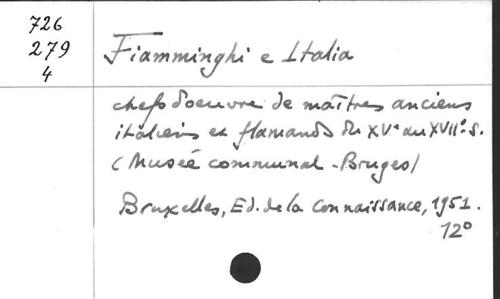 726
279
4
Fiamminghi e Italia
chefs d'oeuvre de maîtres anciens
italiens et flamands du XVe au XVIIe s.
(Museé communal - Bruges)
Bruxelles, Ed. de la Connaissance, 1951.
12º